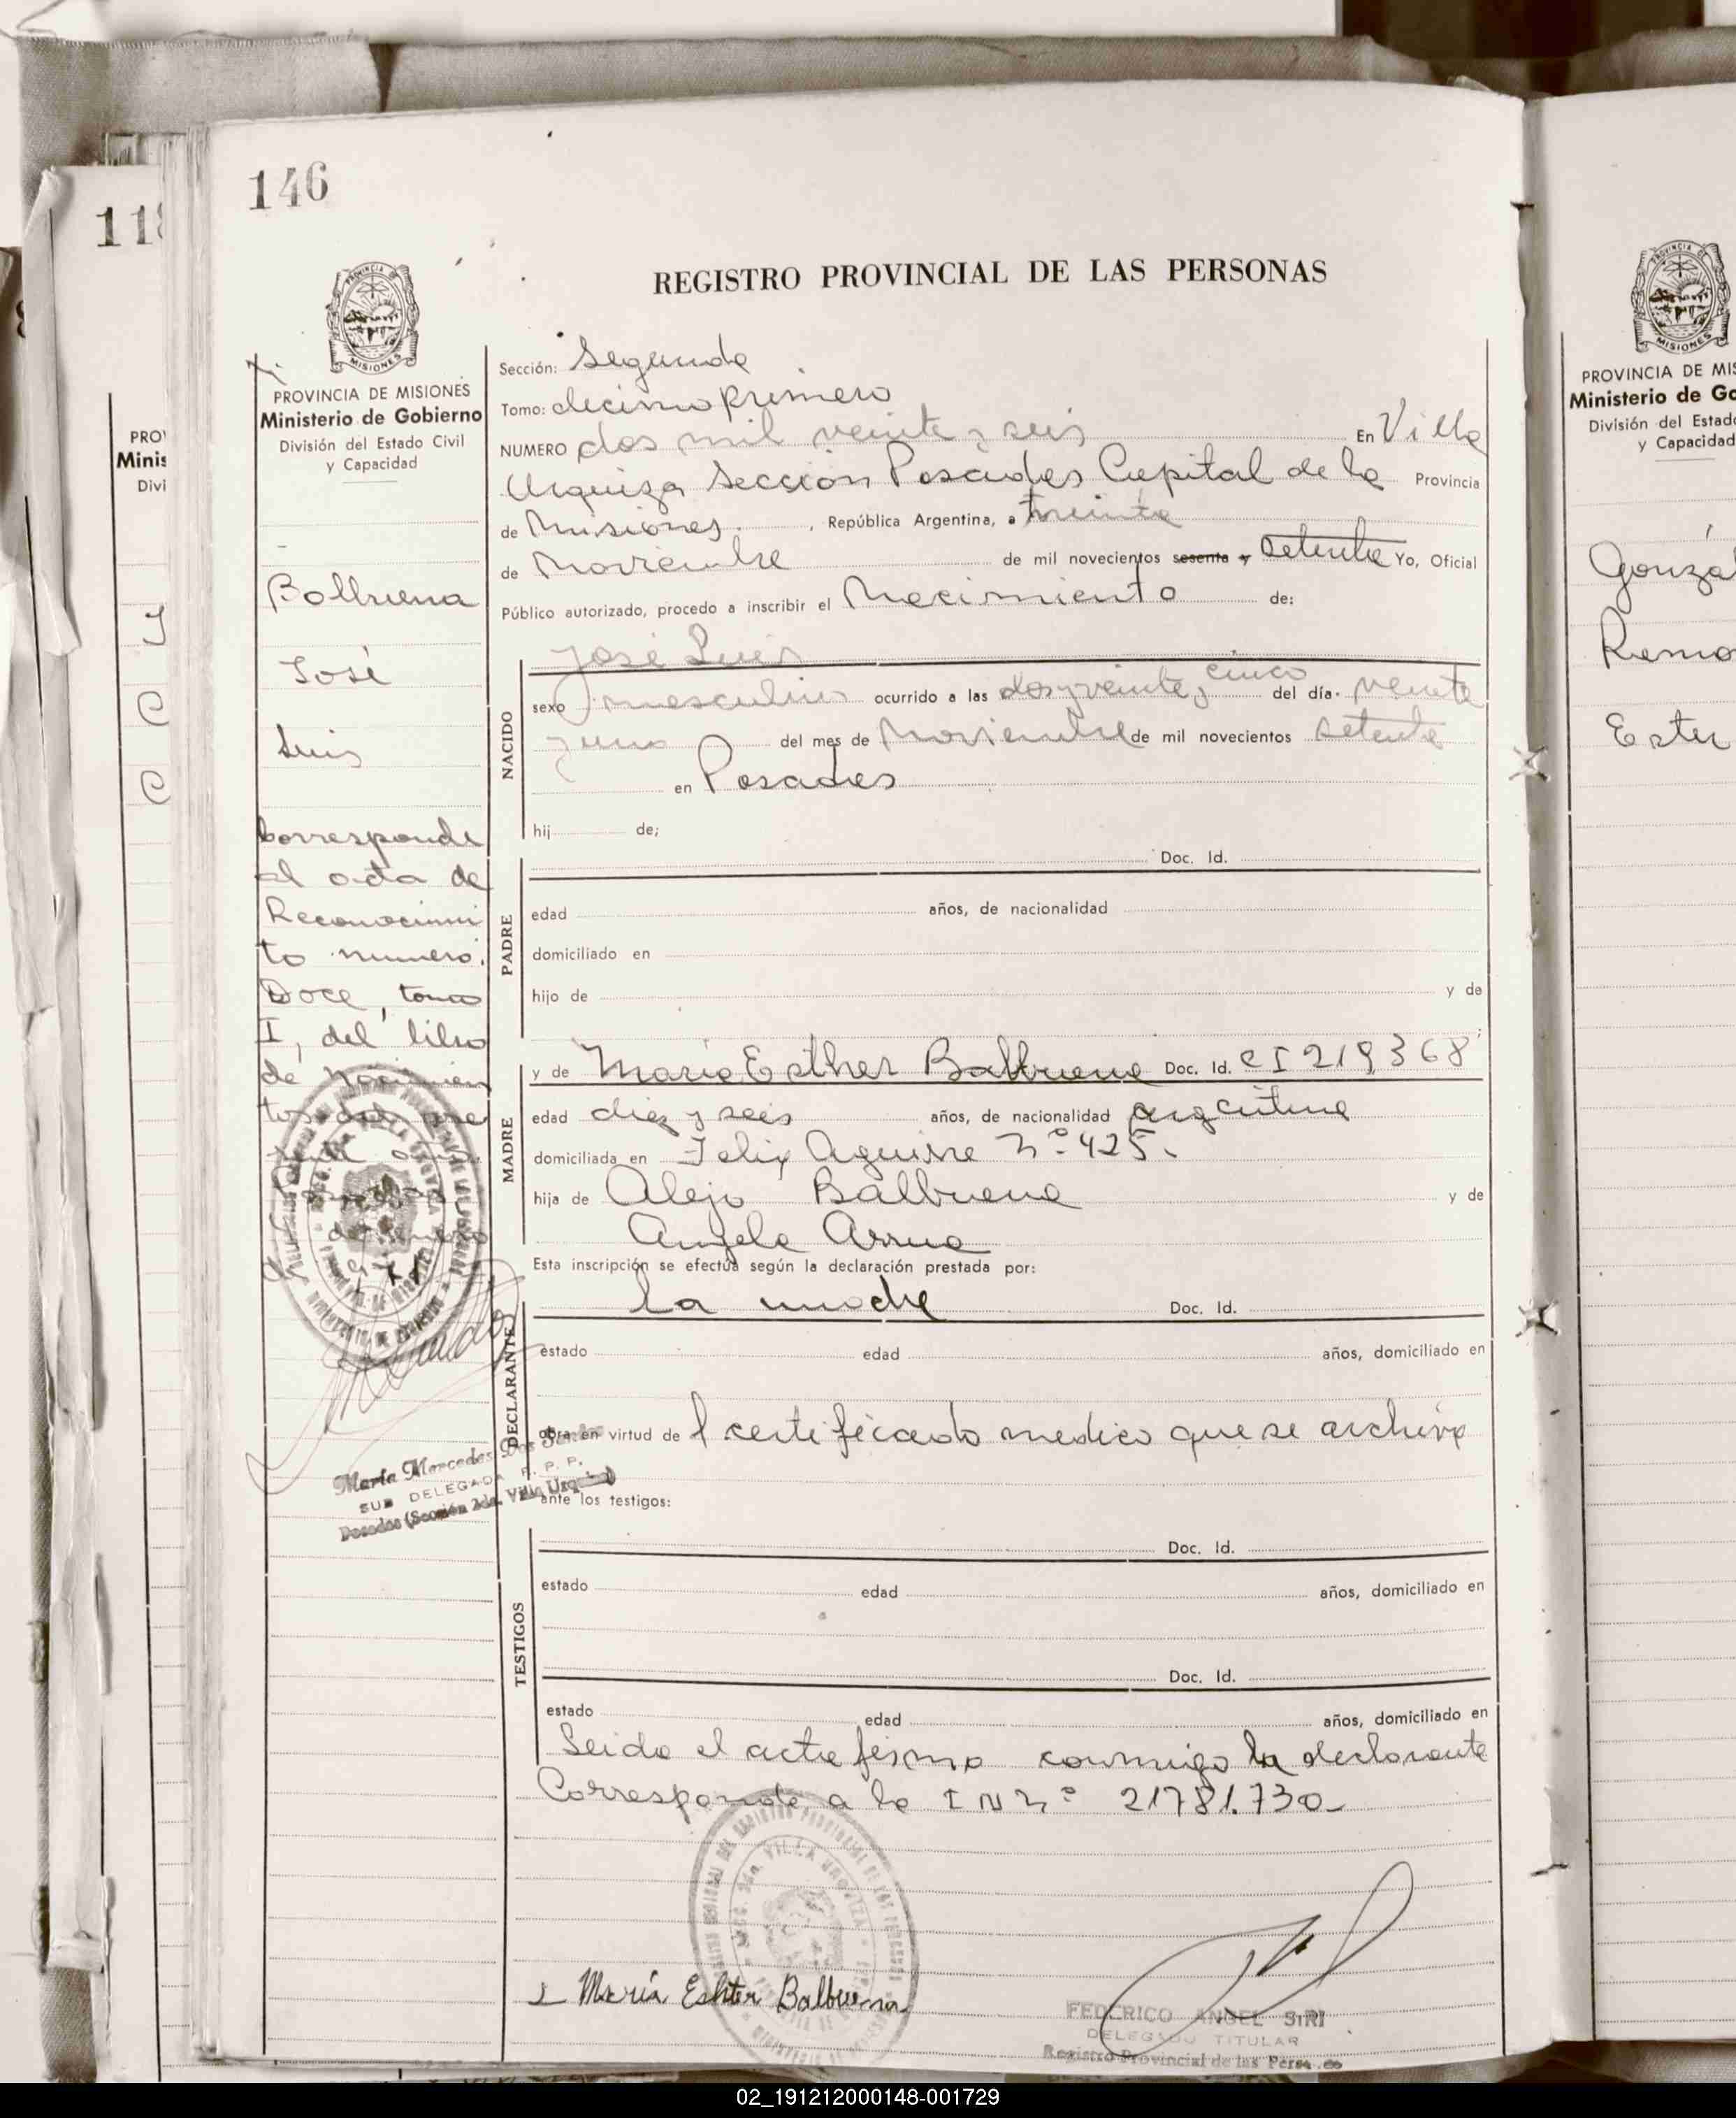 146
118
REGISTRO PROVINCIAL DE LAS PERSONAS
PROVINCIA DE MISIONES
Ministerio de Gobierno
División del Estado Civil
y Capacidad
Balbuena
José
Luis
Corresponde
al acta de
Reconocimi
to numero
Doce, tomo
I, del libro
de nacimien
tos del pre
María Mercedes Dos
SUB DELEGADA R. P. P.
Posadas (Sección 2da. Villa Urquiza)
Sección: Segunda
Tomo: decimo primero
NUMERO dos mil veinte y seis En Villa
Urquiza Sección Posadas Capital de la Provincia
de Misiones , República Argentina, a treinta
de Noviembre de mil novecientos sesenta y Setenta Yo, Oficial
Público autorizado, procedo a inscribir el Nacimiento de:
José Luis
NACIDO
sexo masculino ocurrido a las dos y veinte y cinco del día veinte
y uno del mes de Noviembre de mil novecientos setenta
en Posadas
hij de;
Doc. Id.
PADRE
edad años, de nacionalidad
domiciliado en
hijo de y de
MADRE
y de María Esther Balbuena Doc. Id. C I 219368
edad diez y seis años, de nacionalidad argentina
domiciliada en Felix Aguirre Nº 425.
hija de Alejo Balbuena y de
Angela Arrua
Esta inscripción se efectúa según la declaración prestada por:
DECLARANTE
la madre Doc. Id.
estado edad años, domiciliado en
obra en virtud de l certificado medico que se archiva
ante los testigos:
TESTIGOS
Doc. Id.
estado edad años, domiciliado en
Doc. Id.
estado edad años, domiciliado en
Leida el acta firma conmigo la declarante
Corresponde a la I N Nº 21781.730_
María Eshter Balbuena
FEDERICO ANGEL SIRI
DELEGADO TITULAR
Registro Provincial de las Personas
PROVINCIA DE MIS
Ministerio de Go
División del Estado
y Capacidad
Gonzá
Ramo
Ester
02_191212000148-001729